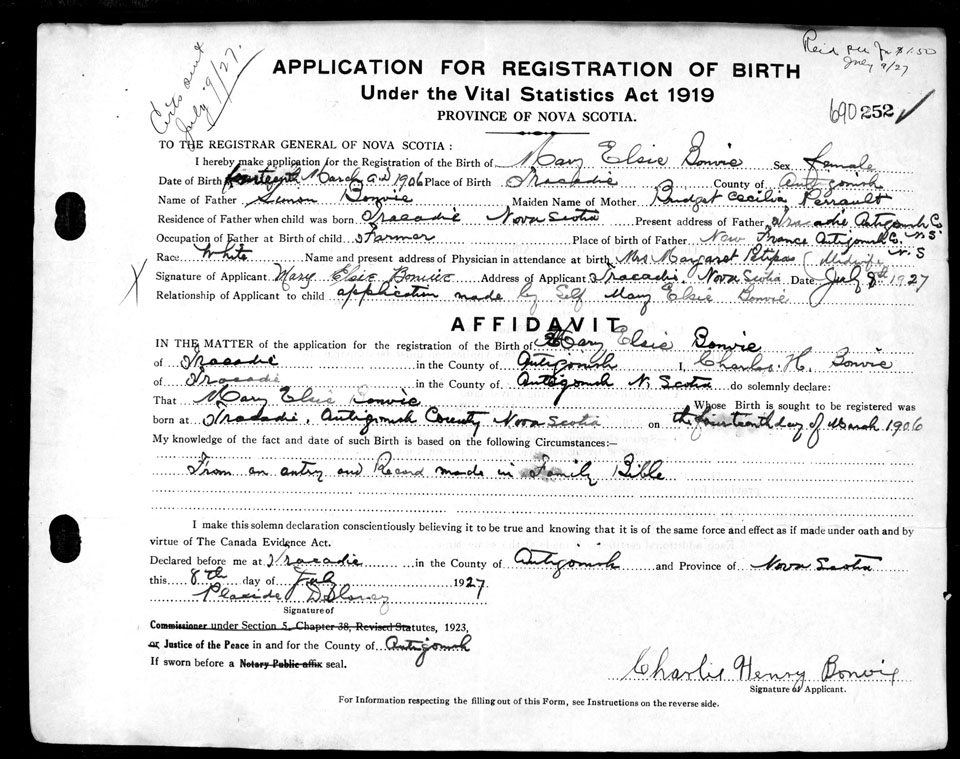 Certs sent
July 9/27.
Paid for $1.50
July 9/27
APPLICATION FOR REGISTRATION OF BIRTH
Under the Vital Statistics Act 1919
PROVINCE OF NOVA SCOTIA.
690252 ✓
TO THE REGISTRAR GENERAL OF NOVA SCOTIA :
I hereby make application for the Registration of the Birth of Mary Elsie Bonvie Sex female
Date of Birth fourteenth March A.D 1906 Place of Birth Tracadie County of Antigonish
Name of Father Simon Bonvie Maiden Name of Mother Bridget Cecilia Perrault
Residence of Father when child was born Tracadie Nova Scotia Present address of Father Tracadie Antigonish Co N.S.
Occupation of Father at Birth of child Farmer Place of birth of Father New France Antigonish Co. N.S
Race White Name and present address of Physician in attendance at birth Mrs Margaret Petipas (Midwife
Signature of Applicant Mary Elsie Bonvie Address of Applicant Tracadie, Nova Scotia Date July 8th 1927
Relationship of Applicant to child application made by Self Mary Elsie Bonvie
X
AFFIDAVIT
IN THE MATTER of the application for the registration of the Birth of Mary Elsie Bonvie
of Tracadie in the County of Antigonish I, Charles. H. Bonvie
of Tracadie in the County of Antigonish N. Scotia do solemnly declare:
That Mary Elsie Bonvie Whose Birth is sought to be registered was
born at Tracadie, Antigonish County, Nova Scotia on the fourteenth day of March 1906
My knowledge of the fact and date of such Birth is based on the following Circumstances:—
From an entry and Record made in Family Bible
I make this solemn declaration conscientiously believing it to be true and knowing that it is of the same force and effect as if made under oath and by
virtue of The Canada Evidence Act.
Declared before me at Tracadie in the County of Antigonish and Province of Nova Scotia
this 8th day of July 1927
Placide
Signature of
Commissioner under Section 5, Chapter 38, Revised Statutes, 1923,
or Justice of the Peace in and for the County of Antigonish
If sworn before a Notary Public affix seal.
Charlie Henry Bonvie
Signature of Applicant.
For Information respecting the filling out of this Form, see Instructions on the reverse side.